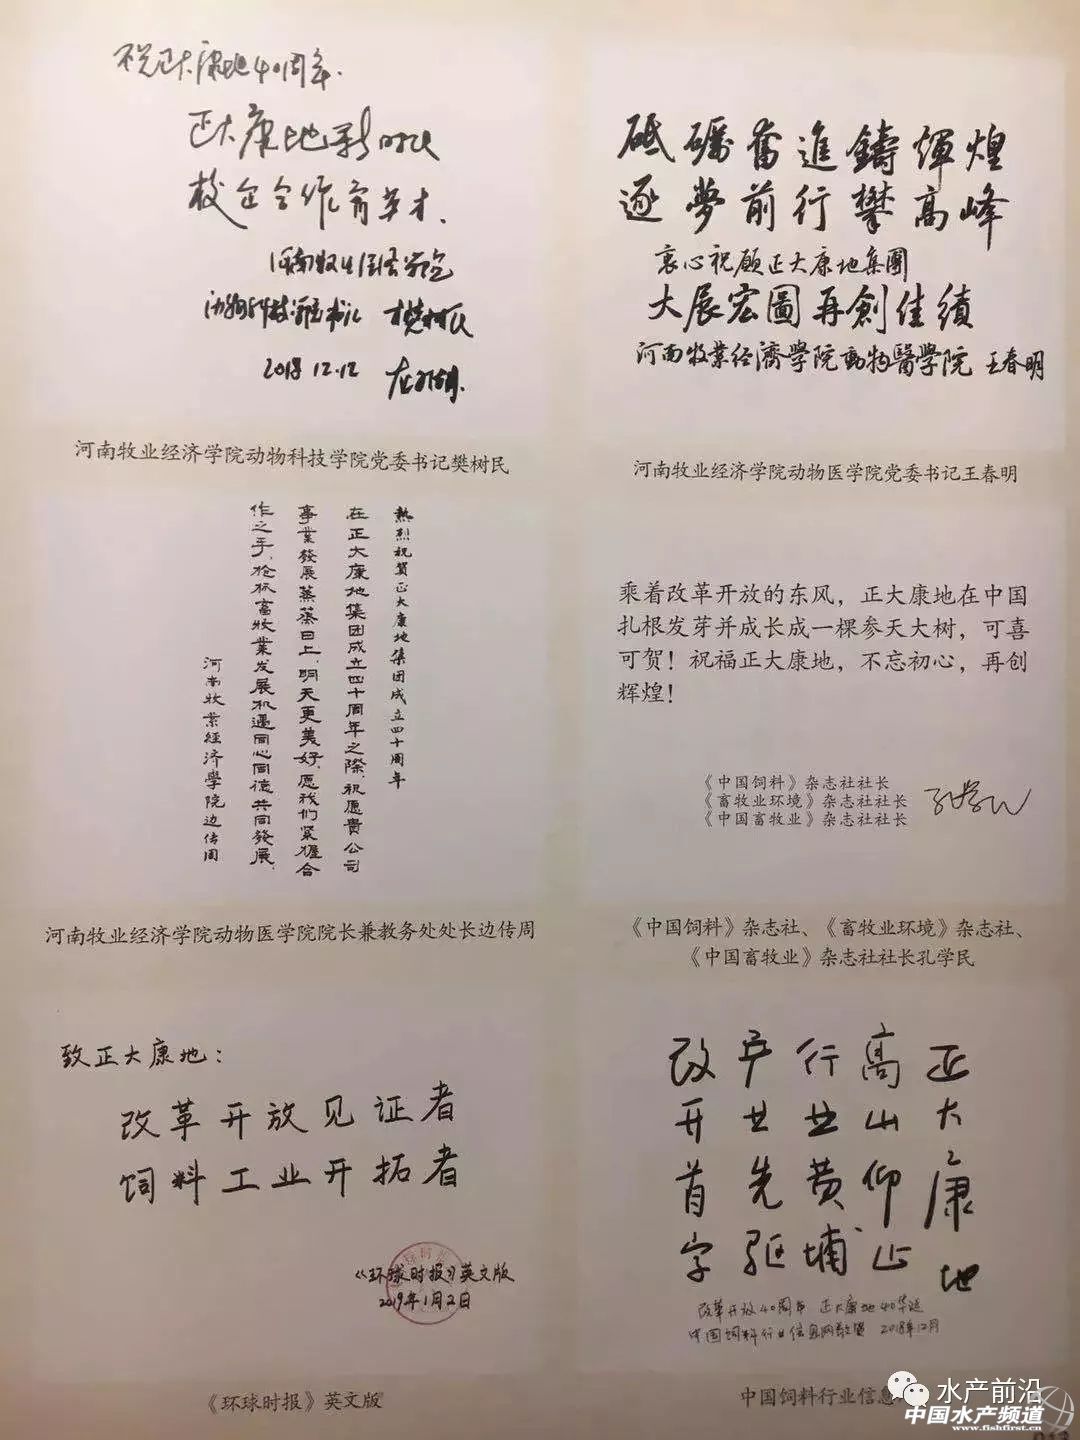 祝正大康地40周年.
正大康地新时代
校企合作育英才.
河南牧业经济学院
动物科技学院书记 樊树民
2018.12.12
河南牧业经济学院动物科技学院党委书记樊树民
砥礪奮進鑄輝煌
逐夢前行攀高峰
衷心祝願正大康地集團
大展宏圖再創佳績
河南牧業经濟學院動物醫學院 王春明
河南牧业经济学院动物医学院党委书记王春明
熱烈祝賀正大康地集团成立四十周年
在正大康地集团成立四十周年之際,祝愿貴公司
事業發展蒸蒸日上,明天更美好,愿我们紧握合
作之手,抢抓畜牧業发展机遇同心同德共同發展.
河南牧業經濟學院边传周
河南牧业经济学院动物医学院院长兼教务处处长边传周
乘着改革开放的东风，正大康地在中国
扎根发芽并成长成一棵参天大树，可喜
可贺！祝福正大康地，不忘初心，再创
辉煌！
《中国饲料》杂志社社长
《畜牧业环境》杂志社社长
《中国畜牧业》杂志社社长
孔学民
《中国饲料》杂志社、《畜牧业环境》杂志社、
《中国畜牧业》杂志社社长孔学民
致正大康地：
改革开放见证者
饲料工业开拓者
《环球时报》英文版
2019年1月2日
《环球时报》英文版
正大康地
高山仰止
行业黄埔
产业先驱
改开首字
改革开放40周年 正大康地40华诞
中国饲料行业信息网敬贺 2018年12月
中国饲料行业信息
水产前沿
中国水产频道
www.fishfirst.cn
013